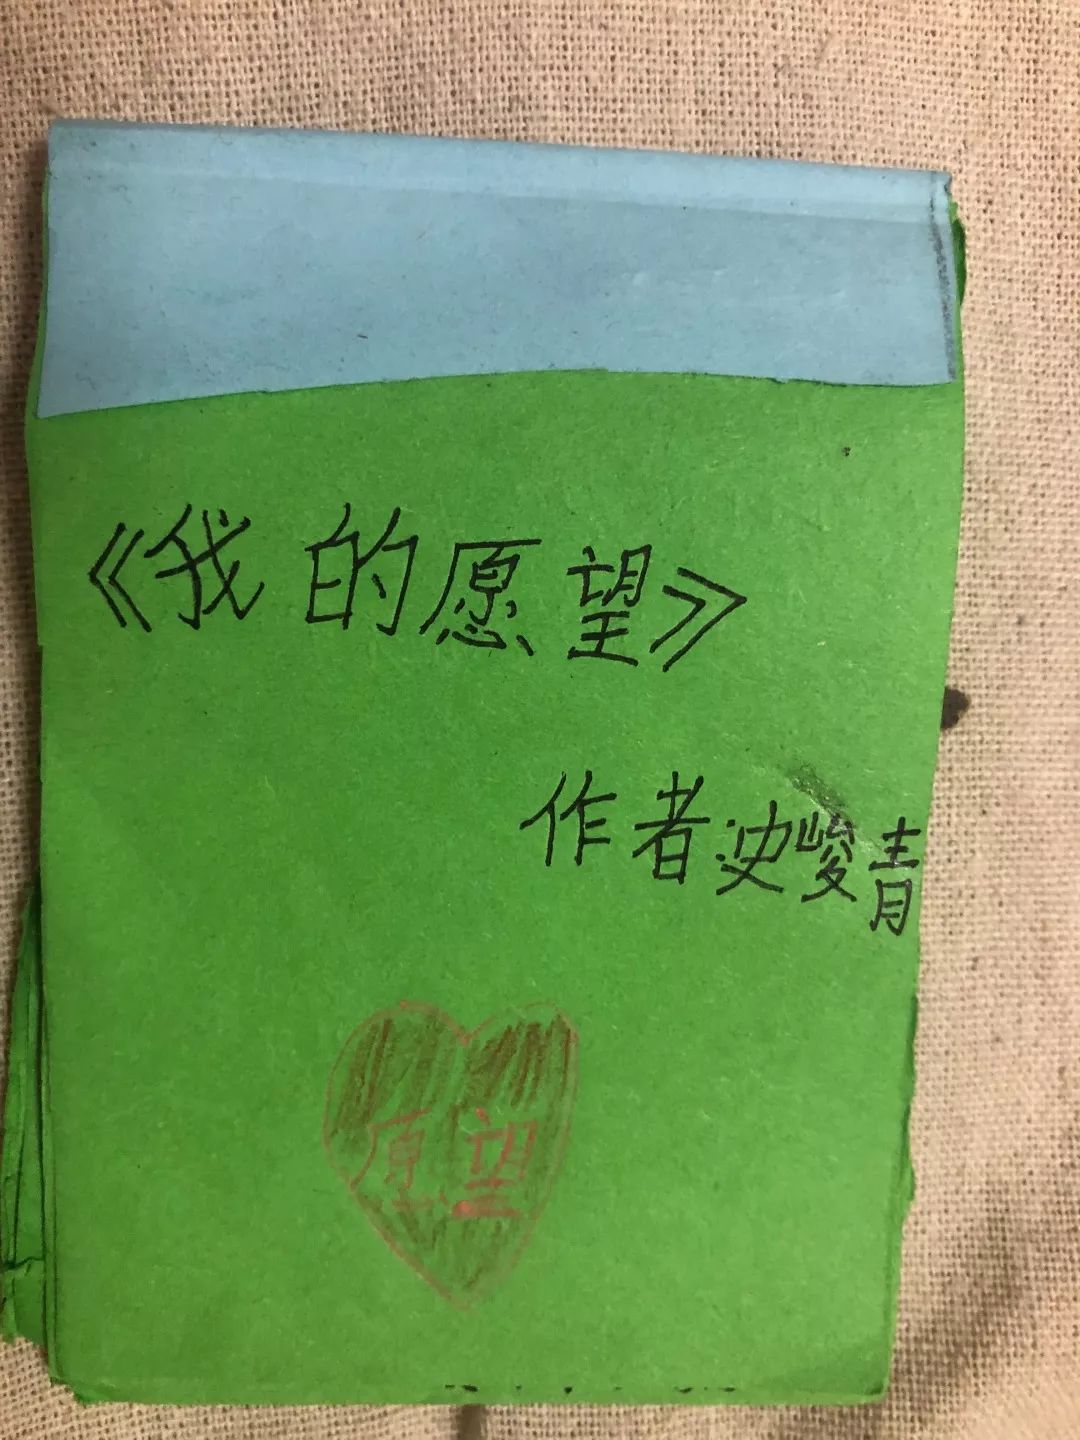 《我的愿望》
作者:史峻青
愿望